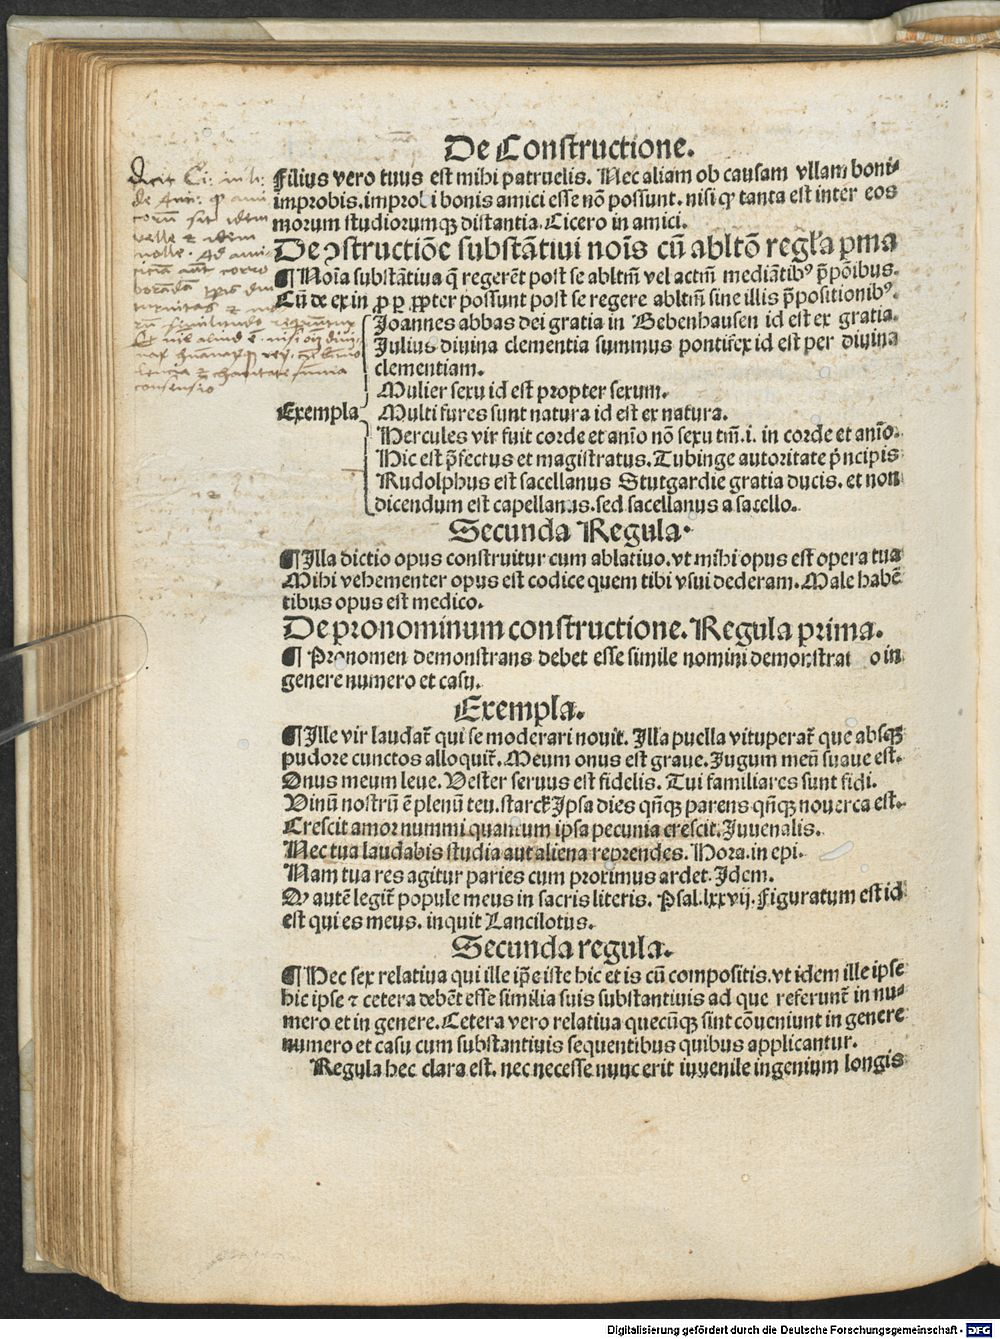 De Constructione.
Filius vero tuus est mihi patruelis. Nec aliam ob causam vllam boni-
improbis. improbi bonis amici esse nõ possunt. nisi ꝙ tanta est inter eos
morum studiorumqꝫ distantia. Cicero in amici.
De ꝯstructiõe substãtiui noĩs cũ abltõ regl'a pma
¶ Noĩa substãtiua q̃ regerẽt post se abltm̃ vel actm̃ mediãtibꝰ p̃põibus.
Cũ de ex in ꝓ p̲ ꝓpter possunt post se regere abltm̃ sine illis p̃positionibꝰ.
Joannes abbas dei gratia in Bebenhausen id est ex gratia.
Julius diuina clementia summus pontifex id est per diuina
clementiam.
Mulier sexu id est propter sexum.
Exempla Multi fures sunt natura id est ex natura.
Hercules vir fuit corde et anĩo nõ sexu tm̃ .i. in corde et anĩo.
Hic est p̃fectus et magistratus. Tubinge autoritate pñcipis
Rudolphus est sacellanus Stutgardie gratia ducis. et non
dicendum est capellanus. sed sacellanus a sacello.
Secunda Regula.
¶ Illa dictio opus construitur cum ablatiuo. vt mihi opus est opera tua
Mihi vehementer opus est codice quem tibi vsui dederam. Male habẽ
tibus opus est medico.
De pronominum constructione. Regula prima.
¶ Pronomen demonstrans debet esse simile nomini demonstrat o in
genere numero et casu.
Exempla.
¶ Ille vir laudat̃ qui se moderari nouit. Illa puella vituperat̃ que absqꝫ
pudore cunctos alloquit̃. Meum onus est graue. Jugum meũ suaue est.
Onus meum leue. Vester seruus est fidelis. Tui familiares sunt fidi.
Vinũ nostrũ ẽ plenũ teu. starck Ipsa dies qñqꝫ parens qñqꝫ nouerca est.
Crescit amor nummi quantum ipsa pecunia crescit. Juuenalis.
Nec tua laudabis studia aut aliena reprendes. Hora. in epi.
Nam tua res agitur paries cum proximus ardet. Idem.
Ꝙ autẽ legit̃ popule meus in sacris literis. Psal. lxxvij. Figuratum est id
est qui es meus. inquit Lancilotus.
Secunda regula.
¶ Hec sex relatiua qui ille ip̃e iste hic et is cũ compositis. vt idem ille ipse
hic ipse ⁊ cetera debẽt esse similia suis substantiuis ad que referunt̃ in nu-
mero et in genere. Cetera vero relatiua quecũqꝫ sint cõueniunt in genere
numero et casu cum substantiuis sequentibus quibus applicantur.
Regula hec clara est. nec necesse nunc erit iuuenile ingenium longis
Dicit Ci: in li:
velle ⁊ idem
nolle.
consensio
Digitalisierung gefördert durch die Deutsche Forschungsgemeinschaft - DFG